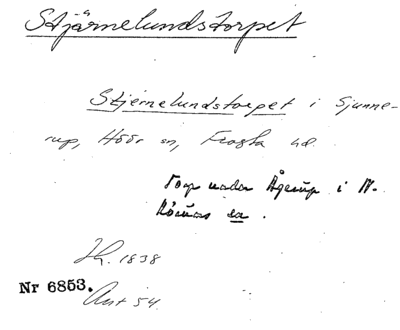 Stjärnelundstorpet
Stjernelundstorpet i Sjunne-
rup, Höör sn, Frosta hd.
Torp under Ågerup i N.
Rörums sn.
Jh. 1838
Nr 6853.
Ant 54